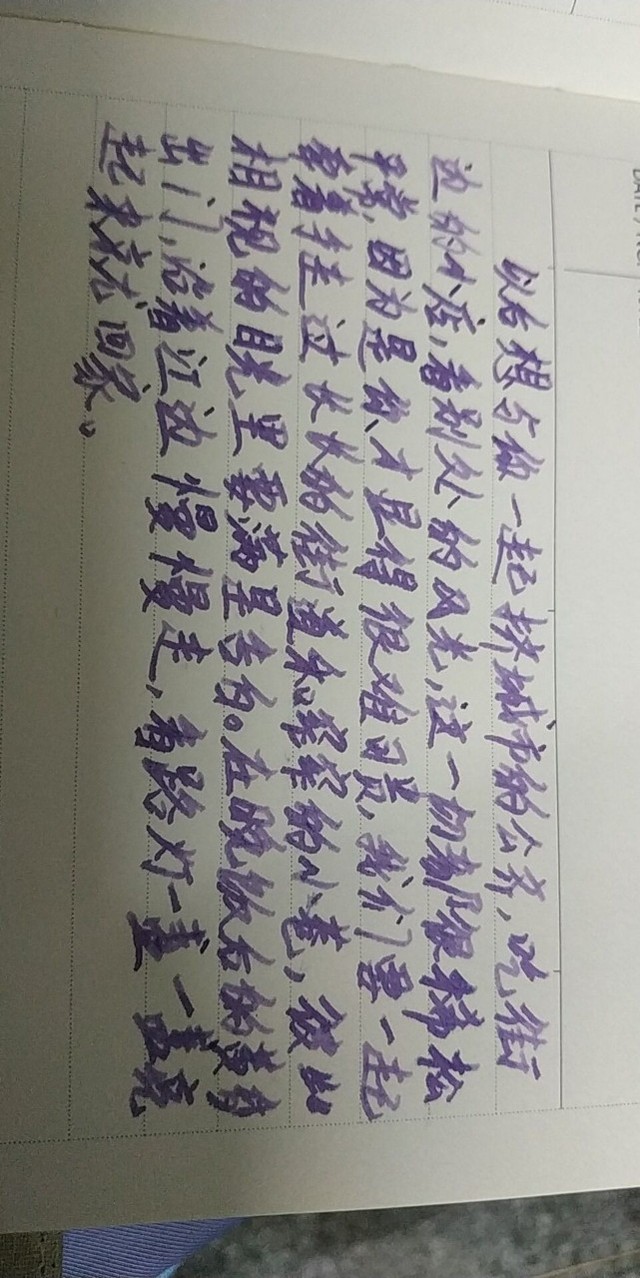 以后想与你一起挤城市的公交,吃街
边的小店,看别处的风光,这一切都很稀松
平常,因为是你,才显得很难可贵,我们要一起
牵着手走过长长的街道和窄窄的小巷,彼此
相视的目光里要满是告白。在晚饭后的
出门,沿着江边慢慢走,看路灯一盏一盏亮
起来,然后回家。
DATE